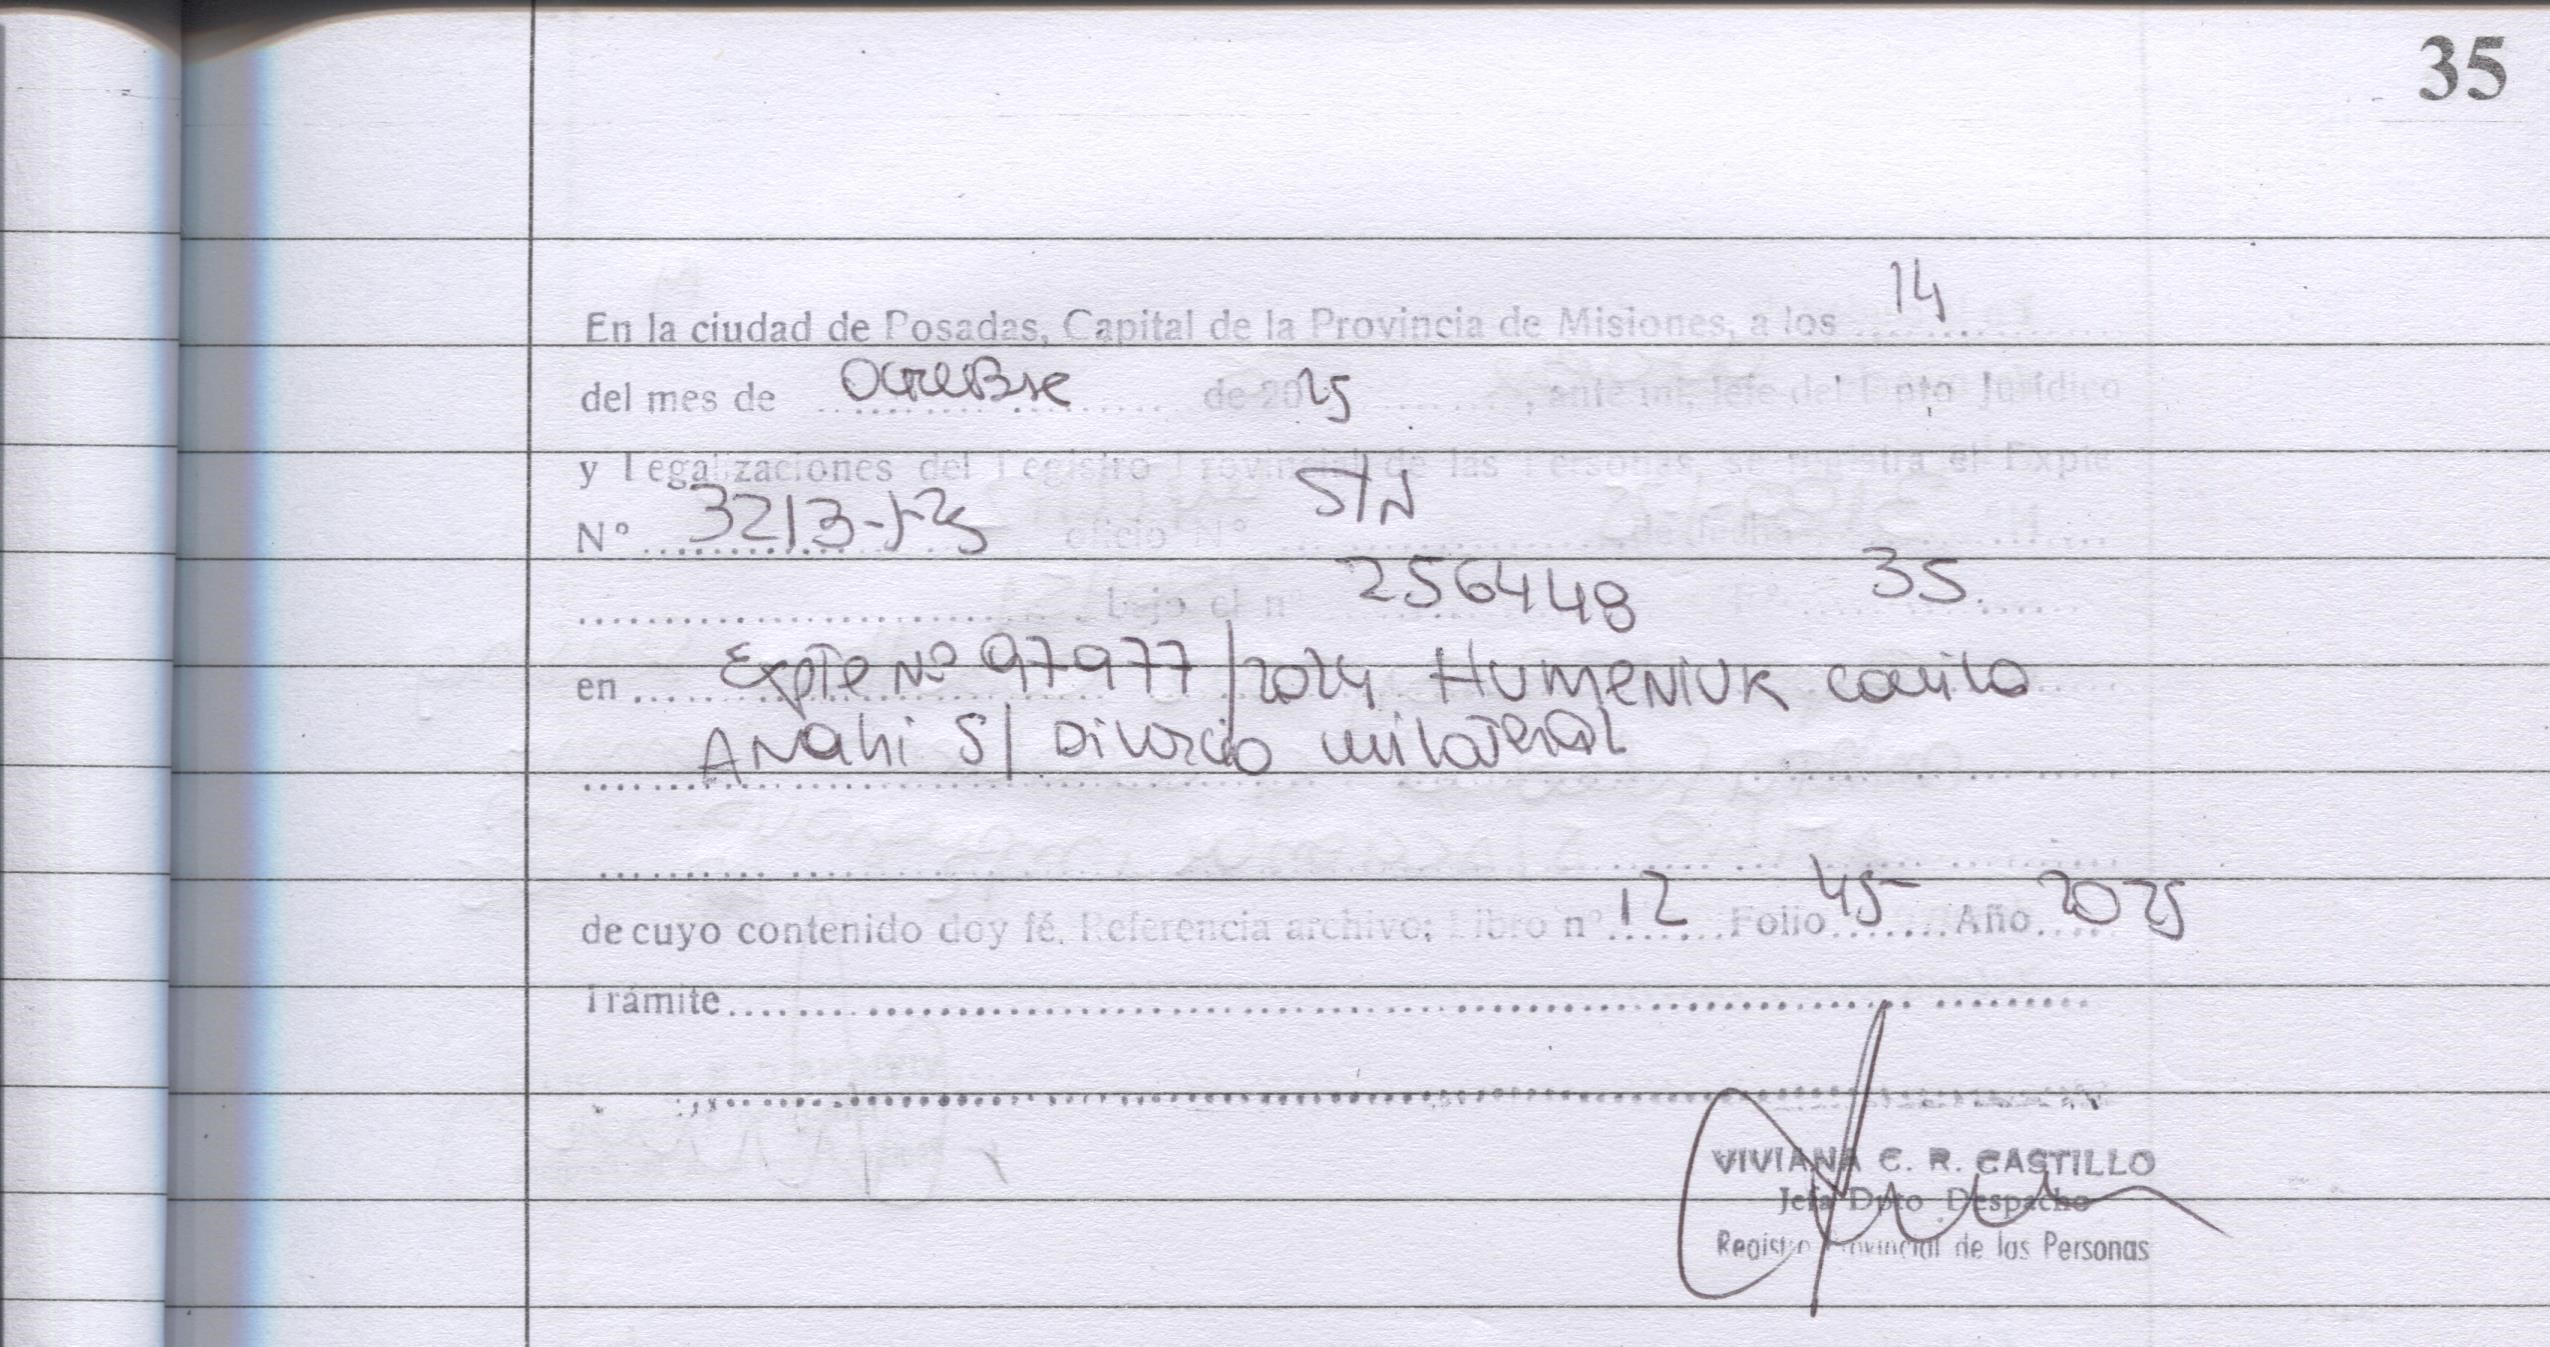 35
En la ciudad de Posadas, Capital de la Provincia de Misiones, a los 14
del mes de Octubre de 2025, ante mi, Jefe del Dpto Jurídico
y Legalizaciones del Registro Provincial de las Personas, se registra el Expte
N° 3213-J-25 oficio N° S/N de fecha
bajo el n° 256448 F° 35
en Expte N° 97977/2024 HUMENIUK Camila
Anahi S/ Divorcio unilateral
de cuyo contenido doy fé. Referencia archivo: Libro n° 12 Folio 45 Año 2025
Trámite
VIVIANA C. R. CASTILLO
Jefa Dpto Despacho
Registro Provincial de las Personas